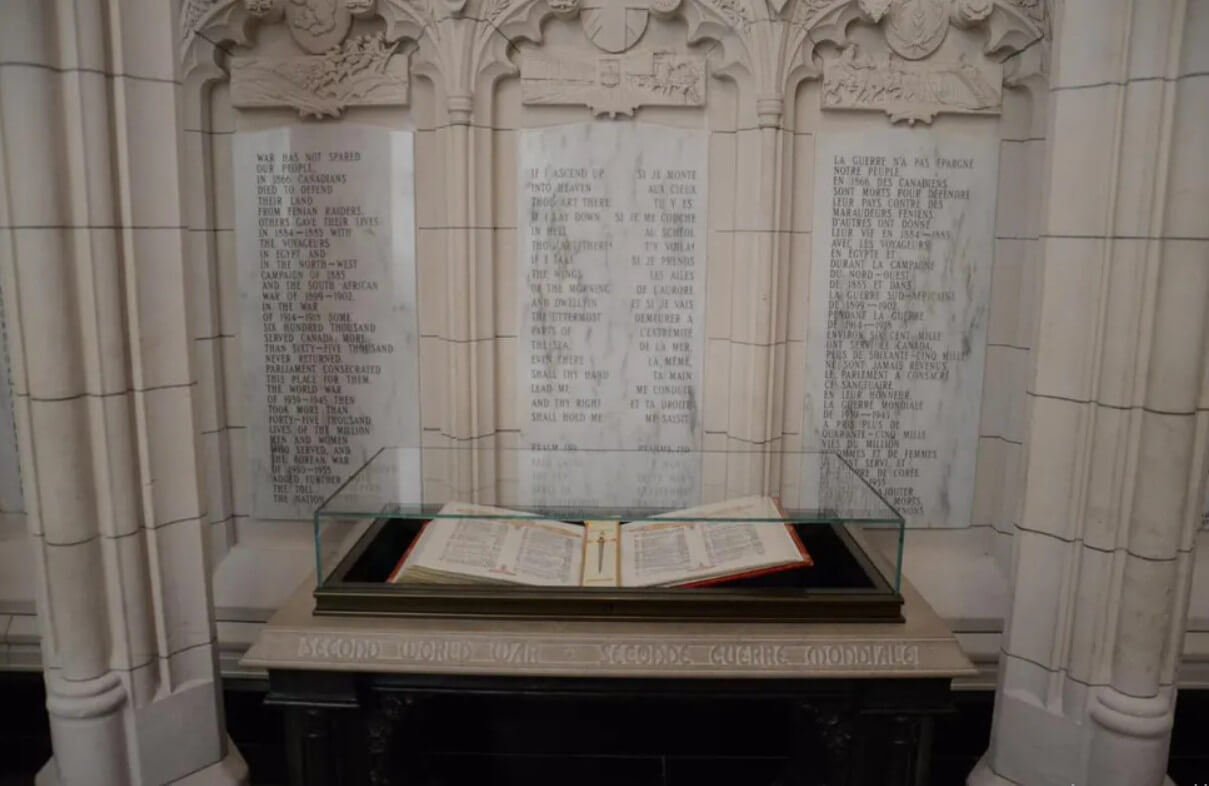 WAR HAS NOT SPARED
OUR PEOPLE.
IN 1866 CANADIANS
DIED TO DEFEND
THEIR LAND
FROM FENIAN RAIDERS.
OTHERS GAVE THEIR LIVES
IN 1884–1885 WITH
THE VOYAGEURS
IN EGYPT AND
IN THE NORTH-WEST
CAMPAIGN OF 1885
AND THE SOUTH AFRICAN
WAR OF 1899–1902.
IN THE WAR
OF 1914–1918 SOME
SIX HUNDRED THOUSAND
SERVED CANADA. MORE
THAN SIXTY-FIVE THOUSAND
NEVER RETURNED.
PARLIAMENT CONSECRATED
THIS PLACE FOR THEM.
THE WORLD WAR
OF 1939–1945 THEN
TOOK MORE THAN
FORTY-FIVE THOUSAND
LIVES OF THE MILLION
MEN AND WOMEN
WHO SERVED, AND
THE KOREAN WAR
OF 1950–1953
ADDED FURTHER
THE TOLL.
THE NATION
IF I ASCEND UP
INTO HEAVEN
THOU ART THERE
IF I LAY DOWN
IN HELL
THOU ART THERE!
IF I TAKE
THE WINGS
OF THE MORNING
AND DWELL IN
THE UTTERMOST
PARTS OF
THE SEA,
EVEN THERE
SHALL THY HAND
LEAD ME
AND THY RIGHT
SHALL HOLD ME
PSALM 139
SI JE MONTE
AUX CIEUX
TU Y ES
SI JE ME COUCHE
AU SCHÉOL
T'Y VOILÀ!
SI JE PRENDS
LES AILES
DE L'AURORE
ET SI JE VAIS
DEMEURER À
L'EXTREMITE
DE LA MER,
LÀ, MÊME,
TA MAIN
ME CONDUIT
ET TA DROITE
ME SAISIT
PSAUME 139
LA GUERRE N'A PAS ÉPARGNÉ
NOTRE PEUPLE.
EN 1866, DES CANADIENS
SONT MORTS POUR DÉFENDRE
LEUR PAYS CONTRE DES
MARAUDEURS FENIENS.
D'AUTRES ONT DONNÉ
LEUR VIE EN 1884–1885
AVEC LES VOYAGEURS
EN EGYPTE ET
DURANT LA CAMPAGNE
DU NORD-OUEST
DE 1885 ET DANS
LA GUERRE SUD-AFRICAINE
DE 1899–1902.
PENDANT LA GUERRE
DE 1914–1918
ENVIRON SIX CENT MILLE
ONT SERVI LE CANADA.
PLUS DE SOIXANTE-CINQ MILLE
NE SONT JAMAIS REVENUS.
LE PARLEMENT A CONSACRÉ
CE SANCTUAIRE
EN LEUR HONNEUR.
LA GUERRE MONDIALE
DE 1939–1945
A PRIS PLUS DE
QUARANTE-CINQ MILLE
VIES DU MILLION
D'HOMMES ET DE FEMMES
SERVI, ET
DE CORÉE
1953
AJOUTER
MORTS.
SECOND WORLD WAR · SECONDE GUERRE MONDIALE